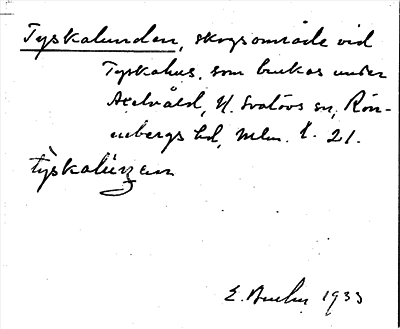 Tyskalunden, skogsområde vid
Tyskahus, som brukas under
Axelvåld, N. Svalövs sn, Rön-
nebergs hd, Mlm. l. 21.
E. 1933